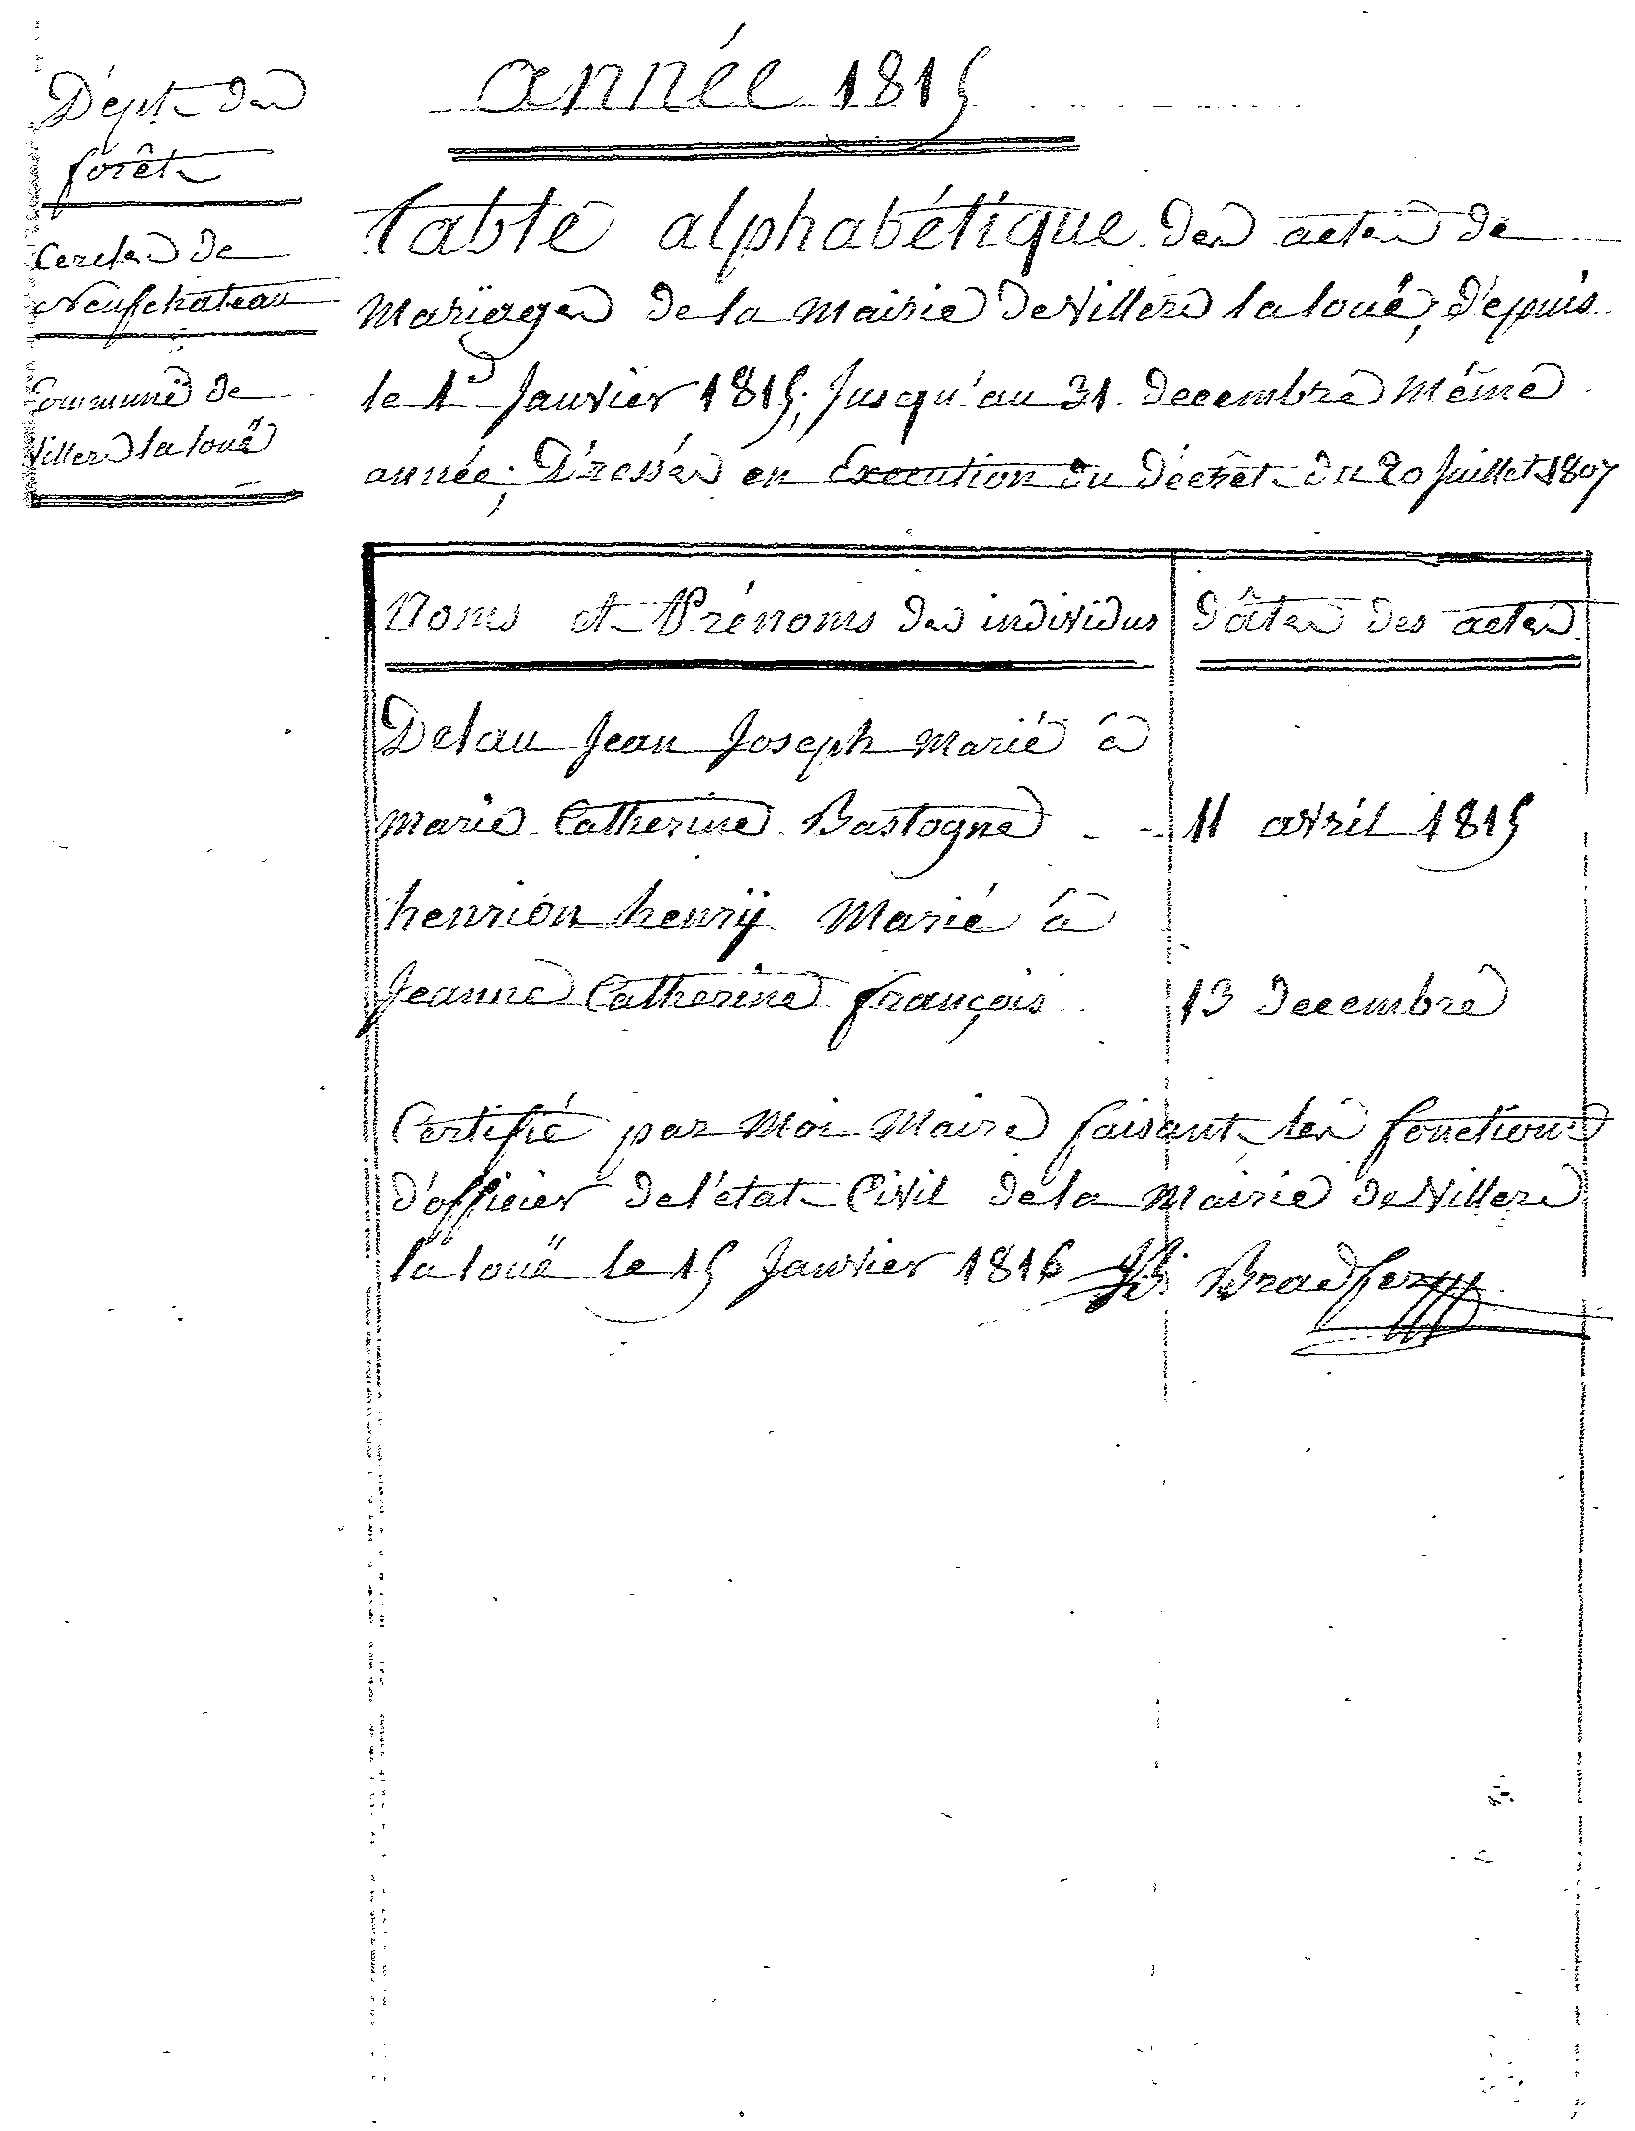 année 1815
Dépt. des
forêt
Cercles de
Neufchateau
Commune de
Villers la loué
table alphabétique des actes de
Mariages de la Mairie de Villers la loué, depuis
le 1er Janvier 1815, Jusqu'au 31 decembre Même
année, Dressés en Execution du décrêt du 20 Juillet 1807
Noms et Prénoms des individus
dâtes des actes
Delau Jean Joseph Marié â
Marie Catherine Bastogne
11 avril 1815
henrion henrÿ Marié â
Jeanne Catherine françois
13 decembre
Certifié par Moi Maire faisant les fonctions
d'officier de l'état Civil de la Mairie de Villers
la louë le 15 Janvier 1816
Bradfer